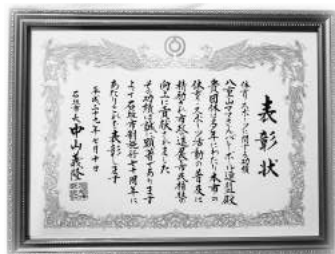 表彰状
体育・スポーツに関する功績
八重山ママさんバレーボール連盟殿
貴団体は多年にわたり本市の
体育・スポーツ活動の普及に
精励され市勢発展と市民福祉の
向上に貢献されました
その功績は誠に顕著であります
よって石垣市制施行七十周年に
あたりこれを表彰します
平成二十九年七月十日
石垣市長 中山義隆